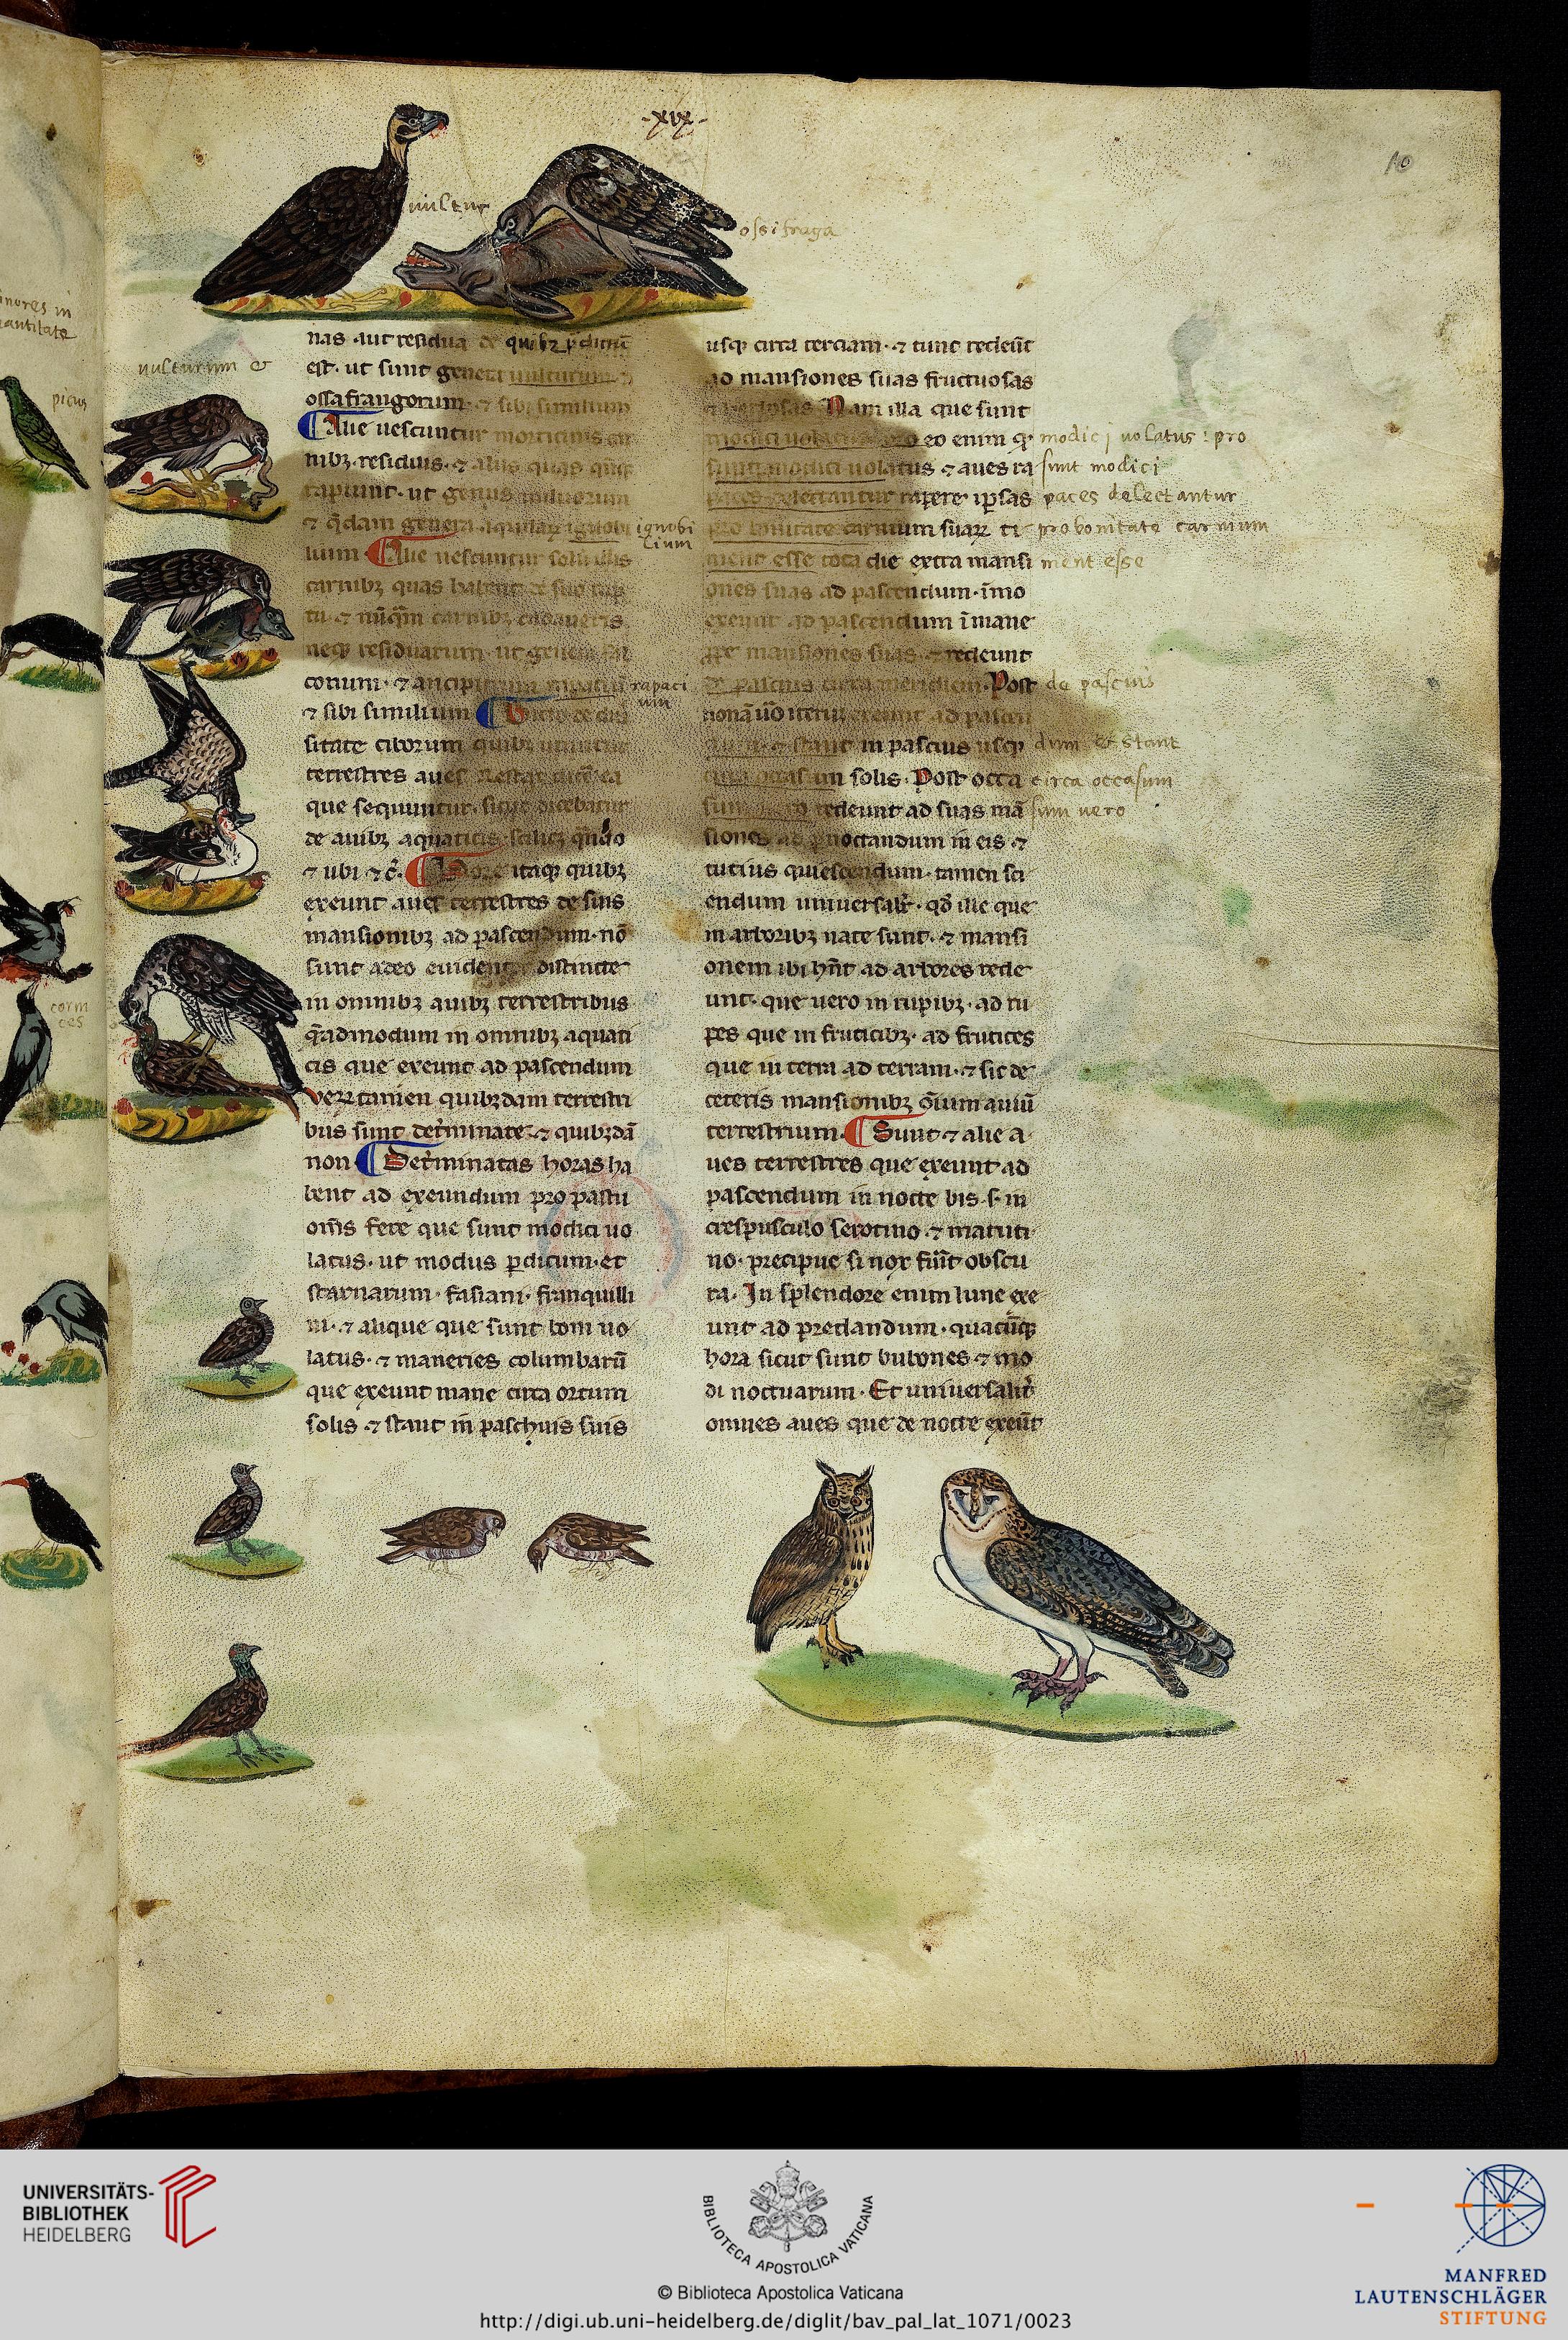 inores in
antitate
picus
corni
ces
·xix·
10
uultur
ossifraga
uulturum &
nas aut residua de quibꝫ p̃dictũ
est. ut sunt generi uulturum ⁊
ossafrangorum. ⁊ sibi similium
Alie uescuntur morticinis car
nibꝫ residuis. ⁊ aliis quas qñqꝫ
rapiunt. ut genus miluorum
⁊ q̃dam genera aquilaꝝ ignobi
lium. Alie uescuntur solũ illis
carnibꝫ quas habent de suo rap
tu. ⁊ nũq̃m carnibꝫ cadaueris
neqꝫ residuarum. ut genera fal
conum. ⁊ ancipitrum rapaciũ
⁊ sibi similium Dicto de diu
sitate ciborum quibꝫ utuntur
terrestres aues. Restat dicere ea
que sequuntur. sicut dicebatur
de auibꝫ aquaticis. scilicꝫ qñdo
⁊ ubi ⁊ c̃. Hore itaqꝫ quibꝫ
exeunt aues terrestres de suis
mansionibꝫ ad pascendum. nõ
sunt adeo euidenter distincte
in omnibꝫ auibꝫ terrestribus
q̃admodum in omnibꝫ aquati
cis que exeunt ad pascendum
Veꝝ tamen quibꝫdam terrestri
bus sunt det̃minate. ⁊ quibꝫdã
non Det̃minatas horas ha
bent ad exeundum pro pastu
om̃s fere que sunt modici uo
latus. ut modus p̱dicum. et
starnarum. fasiani. franquilli
ni. ⁊ alique que sunt boni uo
latus. ⁊ maneries columbarũ
que exeunt mane circa ortum
solis ⁊ stant in paschuis suis
ignobi
lium
rapaci
um
usqꝫ circa terciam. ⁊ tunc redeũt
ad mansiones suas fructuosas
Nam illa que sunt
modici uolatus pro eo enim qꝫ
sunt modici uolatus ⁊ aues ra
paces delectantur rapere ipsas
pro bonitate carnium suaꝝ ti
ment esse tota die extra mansi
ones suas ad pascendum. ĩmo
exeunt ad pascendum ĩ mane
mansiones suas. ⁊ redeunt
de pascuis circa meridiem. Post
nonã ũo iterũ exeunt ad pascen
dum. ⁊ stant in pascuis usqꝫ
circa occasum solis. Post occa
sum uero redeunt ad suas mã
siones ad p̱noctandum in eis ⁊
tutius quiescendum. tamen sci
endum uniuersalit̃. qd̃ ille que
in arboribꝫ nate sunt. ⁊ mansi
onem ibi hñt ad arbores rede
unt. que uero in rupibꝫ. ad ru
pes que in fruticibꝫ. ad frutices
que in terra ad terram. ⁊ sic de
ceteris mansionibꝫ õium auiũ
terrestrium. Sunt ⁊ alie a
ues terrestres que exeunt ad
pascendum in nocte bis. s. in
crespusculo serotino ⁊ matuti
no. precipue si nox fũit obscu
ra. In splendore enim lune exe
unt ad predandum. quacũqꝫ
hora sicut sunt bubones ⁊ mo
di noctuarum. Et uniuersalit̃
omnes aues que de nocte exeũt
modici uolatus : pro
sunt modici
paces delectantur
pro bonitate carnium
ment esse
de pascuis
dum et stant
circa occasum
sum uero
UNIVERSITÄTS-
BIBLIOTHEK
HEIDELBERG
BIBLIOTECA APOSTOLICA VATICANA
© Biblioteca Apostolica Vaticana
http://digi.ub.uni-heidelberg.de/diglit/bav_pal_lat_1071/0023
MANFRED
LAUTENSCHLÄGER
STIFTUNG